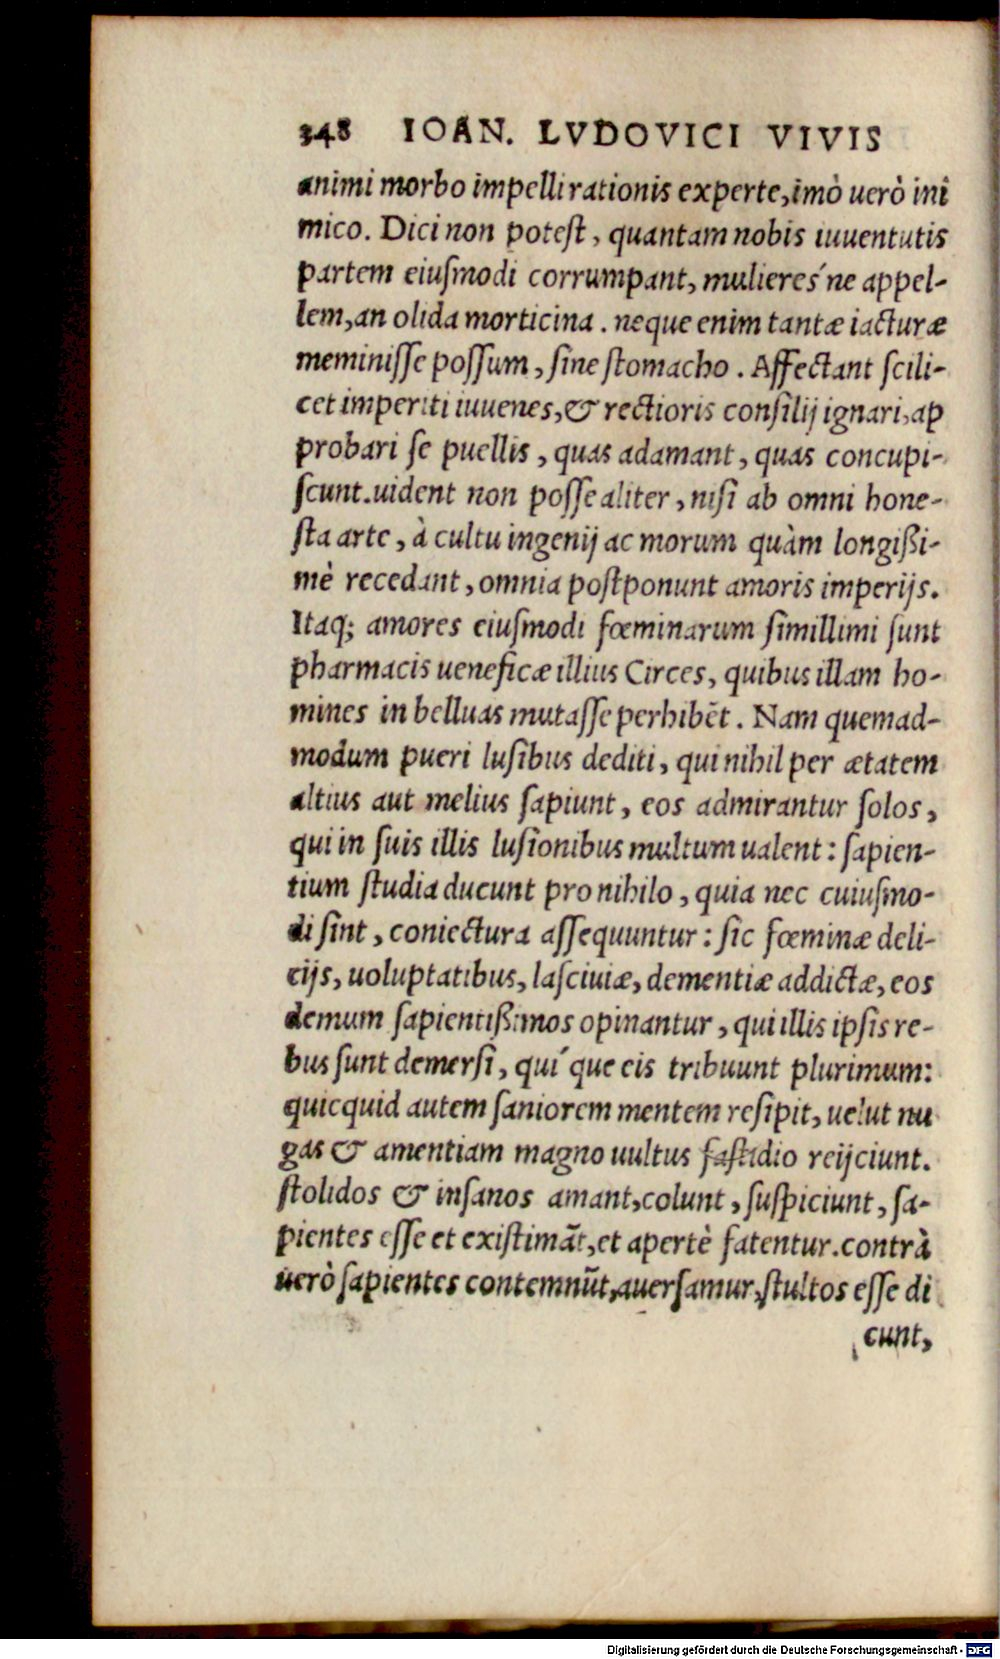 348 IOAN. LVDOVICI VIVIS
animi morbo impelli rationis experte, imò uerò ini
mico. Dici non poteſt, quantam nobis iuuentutis
partem eiuſmodi corrumpant, mulieres´ne appel-
lem, an olida morticina. neque enim tantæ iacturæ
meminiſſe poſſum, ſine ſtomacho. Affectant ſcili-
cet imperiti iuuenes, & rectioris conſilij ignari, ap
probari ſe puellis, quas adamant, quas concupi-
ſcunt. uident non poſſe aliter, niſi ab omni hone-
ſta arte, à cultu ingenij ac morum quàm longißi-
mè recedant, omnia poſtponunt amoris imperijs.
Itaq; amores eiuſmodi fœminarum ſimillimi ſunt
pharmacis ueneficæ illius Circes, quibus illam ho-
mines in belluas mutaſſe perhibēt. Nam quemad-
modum pueri luſibus dediti, qui nihil per ætatem
altius aut melius ſapiunt, eos admirantur ſolos,
qui in ſuis illis luſionibus multum ualent: ſapien-
tium ſtudia ducunt pro nihilo, quia nec cuiuſmo-
di ſint, coniectura aſſequuntur: ſic fœminæ deli-
cijs, uoluptatibus, laſciuiæ, dementiæ addictæ, eos
demum ſapientißimos opinantur, qui illis ipſis re-
bus ſunt demerſi, qui´que eis tribuunt plurimum:
quicquid autem ſaniorem mentem reſipit, uelut nu
gas & amentiam magno uultus faſtidio reijciunt.
ſtolidos & inſanos amant, colunt, ſuſpiciunt, ſa-
pientes eſſe et exiſtimāt, et apertè fatentur. contrà
uerò ſapientes contemnūt, auerſamur, ſtultos eſſe di
cunt,
Digitalisierung gefördert durch die Deutsche Forschungsgemeinschaft - DFG